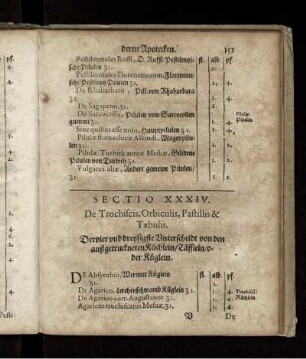 deren Apotecken. 153
Pestilentiales Ruffi, D. Ruffi Pestilentzi-
sche Pilulen ʒ1.
Pestilentiales Florentinorum, Florentini-
sche Pestilentz Pilulen ʒ1.
De Rhabarbaro, Pill. von Rhabarbara
ʒ1.
De Sagapeno, ʒ1.
De Sarcocolla, Pilulen von Sarcocollen
gummi ʒ1.
Sine quibus esse nolo, Hauptpilulen ʒ1.
Pilulæ stomachicæ
Pilulæ Turbith aureæ Mesuæ, Güldene
Pilulen von Turbith ʒ1.
Vulgares aliæ, Andere gemeine Pilulen
ʒ1.
SECTIO XXXIV.
De Trochiscis, Orbiculis, Pastillis &
Tabulis.
Der vier vnd dreyssigste Vnterscheidt von den
außgetruckneten Küchlein/Täfflein/o-
der Küglein.
DE Absynthio, Wermut Küglein. fl. alb. pf.
ʒ1.
De Agarico, Lerchenschwamb Küglein ʒ1.
De Agarico com: Augustanor. ʒ1.
Agaricus trochiscatus Mesuæ, ʒ1.
V De